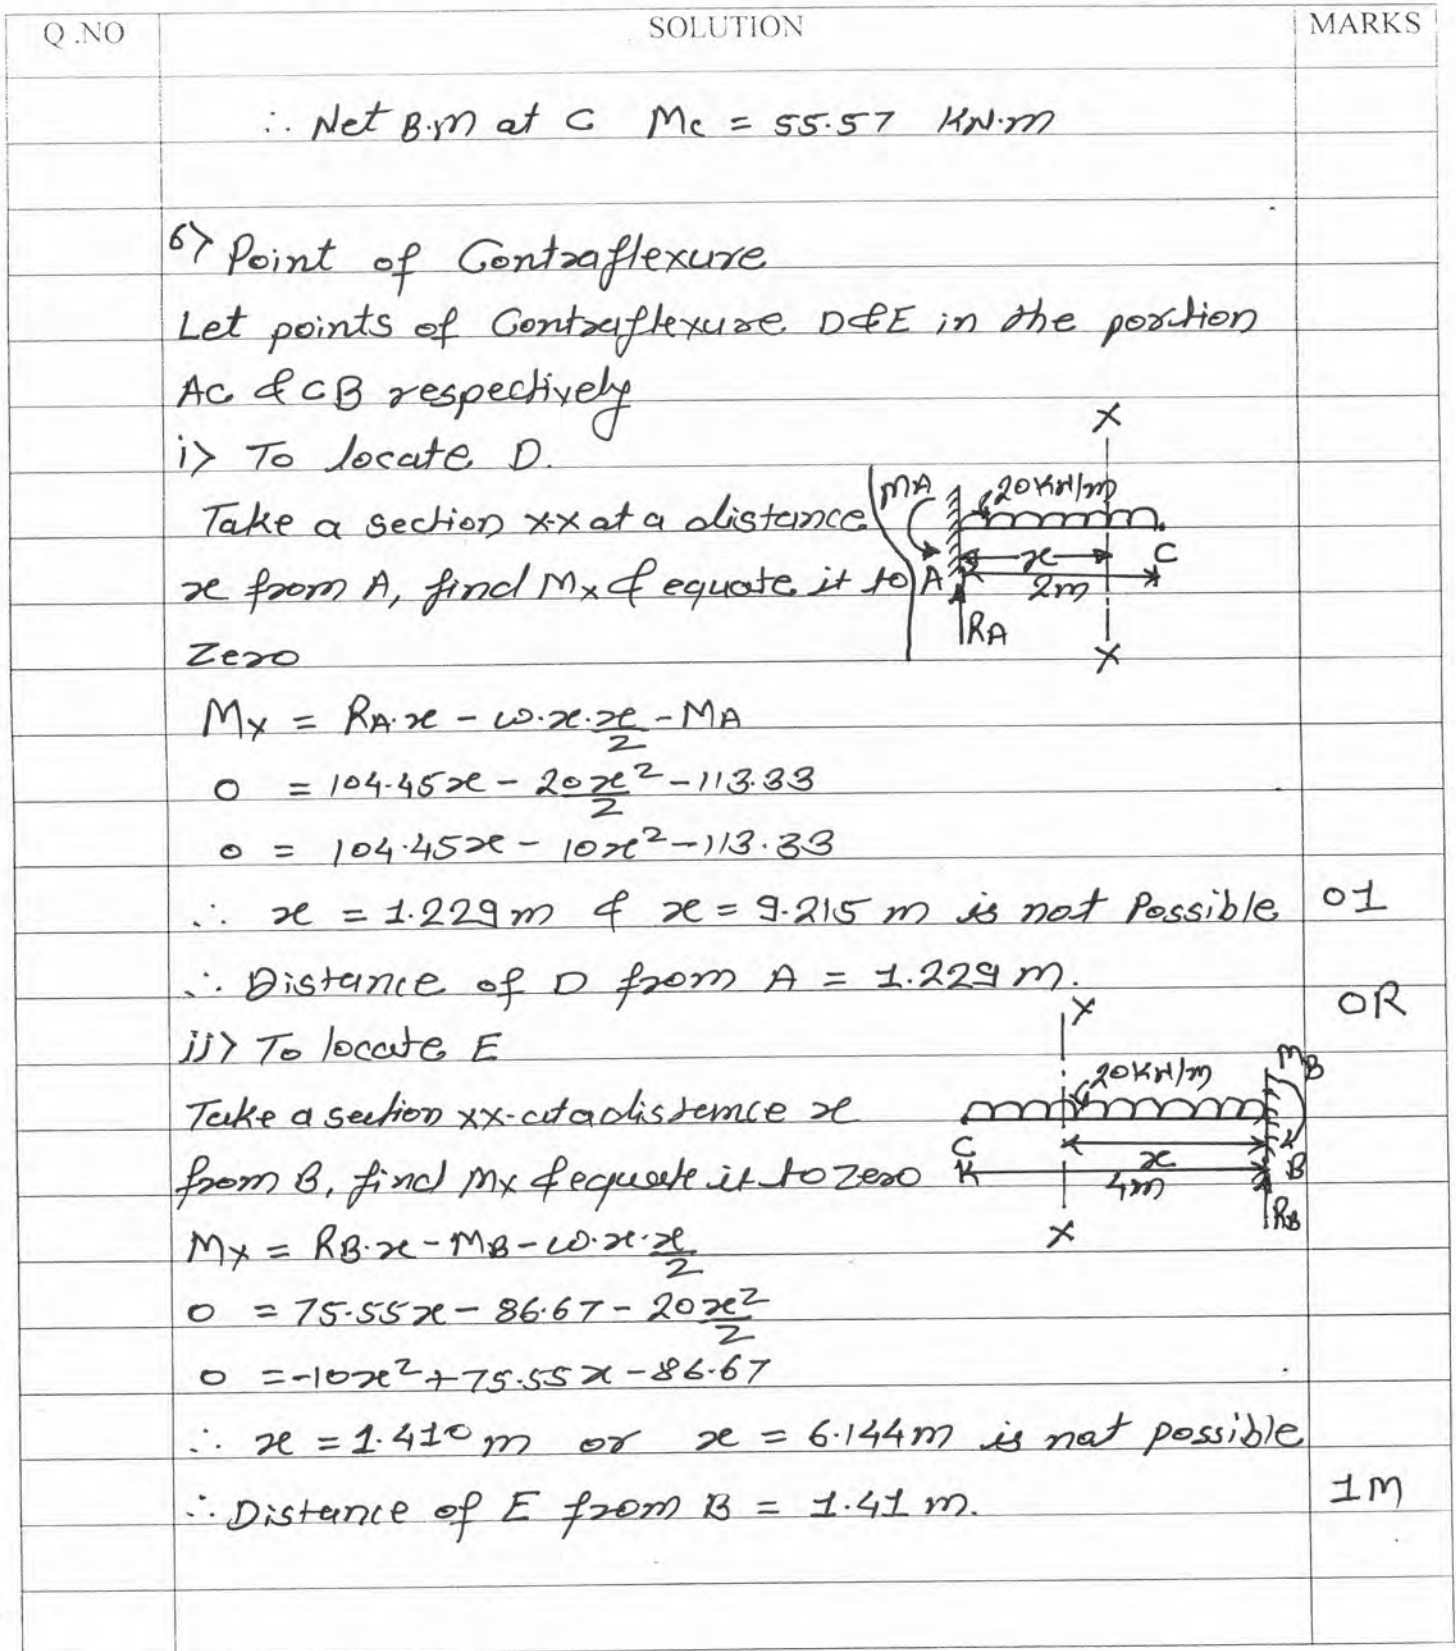 Q.NO SOLUTION MARKS
∴ Net B.M at C Mc = 55.57 KN.m
6> Point of Contraflexure
Let points of Contraflexure D & E in the portion
AC & CB respectively
i> To locate D.
Take a section x-x at a distance
x from A, find Mx & equate it to
Zero
X
MA
20KN/m
x
C
A
2m
RA
X
Mx = RA.x - w.x.x/2 - MA
0 = 104.45x - 20x²/2 - 113.33
0 = 104.45x - 10x² - 113.33
∴ x = 1.229m & x = 9.215 m is not Possible 01
∴ Distance of D from A = 1.229 m.
OR
ii> To locate E
Take a section xx-at a distance x
from B, find Mx & equate it to zero
X
MB
20KN/m
C
x
B
4m
RB
X
Mx = RB.x - MB - w.x.x/2
0 = 75.55x - 86.67 - 20x²/2
0 = -10x² + 75.55x - 86.67
∴ x = 1.410 m or x = 6.144m is not possible
∴ Distance of E from B = 1.41 m. 1M